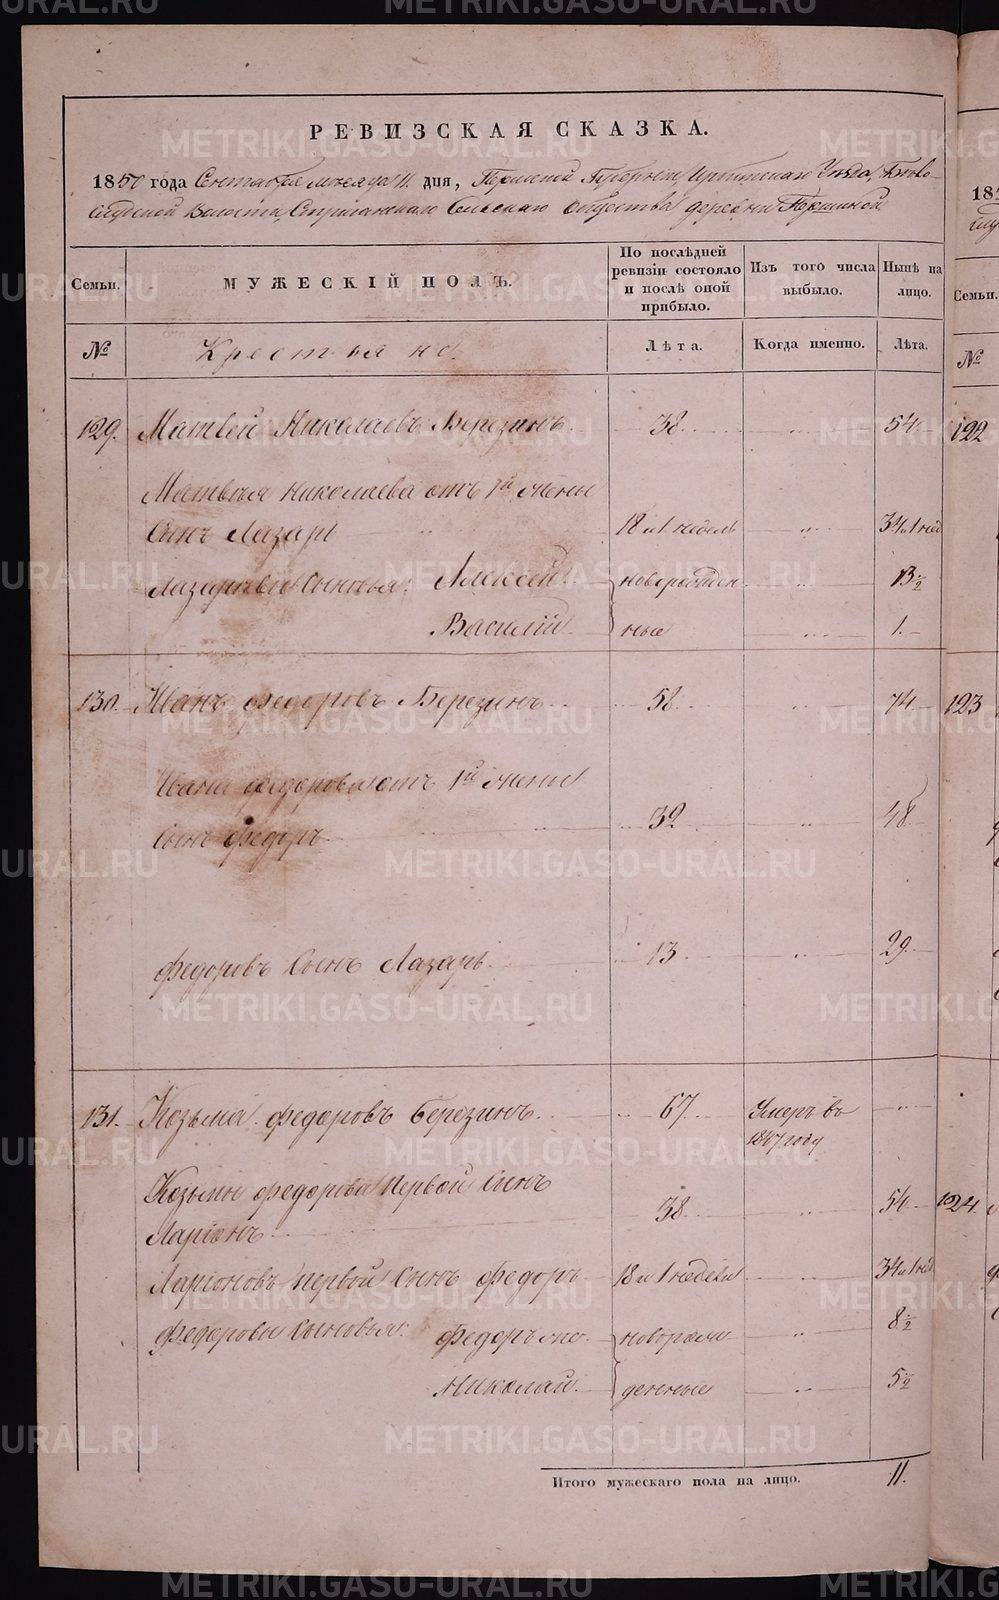 РЕВИЗСКАЯ СКАЗКА.
1850 года Сентября месяца 11. дня, Пермской Губерніи, Ирбитскаго Уезда,
Волости, Сельскаго Общества деревни Першиной
Семьи.
МУЖЕСКІЙ ПОЛЪ.
По послѣдней ревизіи состояло и послѣ оной прибыло.
Изъ того числа выбыло.
Нынѣ на лицо.
Семьи.
№
Крестьяне.
Лѣта.
Когда именно.
Лѣта.
№
129. Матвей Николаевъ Березинъ. 38. " 54. 122
Матвѣя Николаева отъ 1й жены
Сынъ Лазарь 18 и 1 недель " 34 и 1 нед
Лазаревы Сыновья: Алексей новорожден " 13 ½
Василій ные " 1.
130. Иванъ Федоровъ Березинъ 58. " 74 123
Ивана Федорова отъ 1й жены
Сынъ Федоръ 32 " 48
Федоровъ Сынъ Лазарь. 13. " 29
131. Козьма Федоровъ Березинъ. 67. Умеръ въ "
1847 году
Козьмы Федорова Первой Сынъ
Ларіонъ 38. " 54 124
Ларіоновъ первой Сынъ Федоръ 18 и 1 недели " 34 и 1 нед
Федоровы Сыновья: Федоръ же новорож " 8 ½
Николай. денные " 5 ½
Итого мужескаго пола на лицо. 11.
METRIKI.GASO-URAL.RU